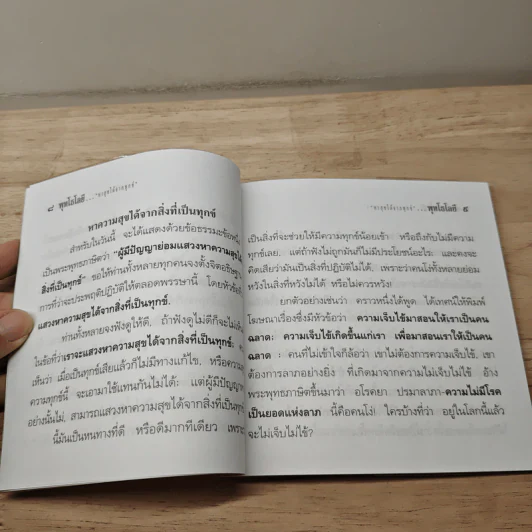 ๘ พุทโธโลยี ..."หาสุขได้จากทุกข์"
หาความสุขได้จากสิ่งที่เป็นทุกข์
สำหรับในวันนี้ จะได้แสดงด้วยข้อธรรมะข้อหนึ่ง
เป็นพระพุทธภาษิตว่า "ผู้มีปัญญาย่อมแสวงหาความสุขได้
สิ่งที่เป็นทุกข์". ขอให้ท่านทั้งหลายทุกคนจงตั้งจิตอธิษฐาน
การที่ว่าจะประพฤติปฏิบัติให้ตลอดพรรษานี้ โดยหัวข้อ
แสวงหาความสุขได้จากสิ่งที่เป็นทุกข์.
ท่านทั้งหลายจงฟังดูให้ดี. ถ้าฟังดูไม่ดีก็จะไม่
ในข้อที่ว่าเราจะแสวงหาความสุขได้จากสิ่งที่เป็นทุกข์;
เห็นว่า เมื่อเป็นทุกข์เสียแล้วก็ไม่มีทางแก้ไข. หรือความ
ความทุกข์นี้ จะเอามาใช้แทนกันไม่ได้; แต่ผู้มีปัญญา
อย่างนั้นไม่, สามารถแสวงหาความสุขได้จากสิ่งที่เป็นทุกข์
นี้มันเป็นหนทางที่ดี หรือดีมากทีเดียว เพราะ
"หาสุขได้จากทุกข์"... พุทโธโลยี ๙
เป็นสิ่งที่จะช่วยให้มีความทุกข์น้อยเข้า หรือถึงกับไม่มีความ
ทุกข์เลย. แต่ถ้าฟังไม่ถูกมันก็ไม่มีประโยชน์อะไร; และคงจะ
คิดเสียว่ามันเป็นสิ่งที่ปฏิบัติไม่ได้, เพราะว่าคนโง่ทั้งหลายย่อม
หวังในสิ่งที่หวังไม่ได้ หรือไม่ควรหวัง!
ยกตัวอย่างเช่นว่า คราวหนึ่งได้พูด ได้เทศน์ให้พิมพ์
โฆษณาเรื่องซึ่งมีหัวข้อว่า ความเจ็บไข้มาสอนให้เราเป็นคน
ฉลาด: ความเจ็บไข้เกิดขึ้นแก่เรา เพื่อมาสอนเราให้เป็นคน
ฉลาด : คนที่ไม่เข้าใจก็ล้อว่า เขาไม่ต้องการความเจ็บไข้, เขา
ต้องการลาภอย่างยิ่ง ที่เกิดมาจากความไม่เจ็บไม่ไข้ อ้าง
พระพุทธภาษิตขึ้นมาว่า อโรคยา ปรมาลาภา-ความไม่มีโรค
เป็นยอดแห่งลาภ นี้คือคนโง่! ใครบ้างที่ว่า อยู่ในโลกนี้แล้ว
จะไม่เจ็บไม่ไข้?